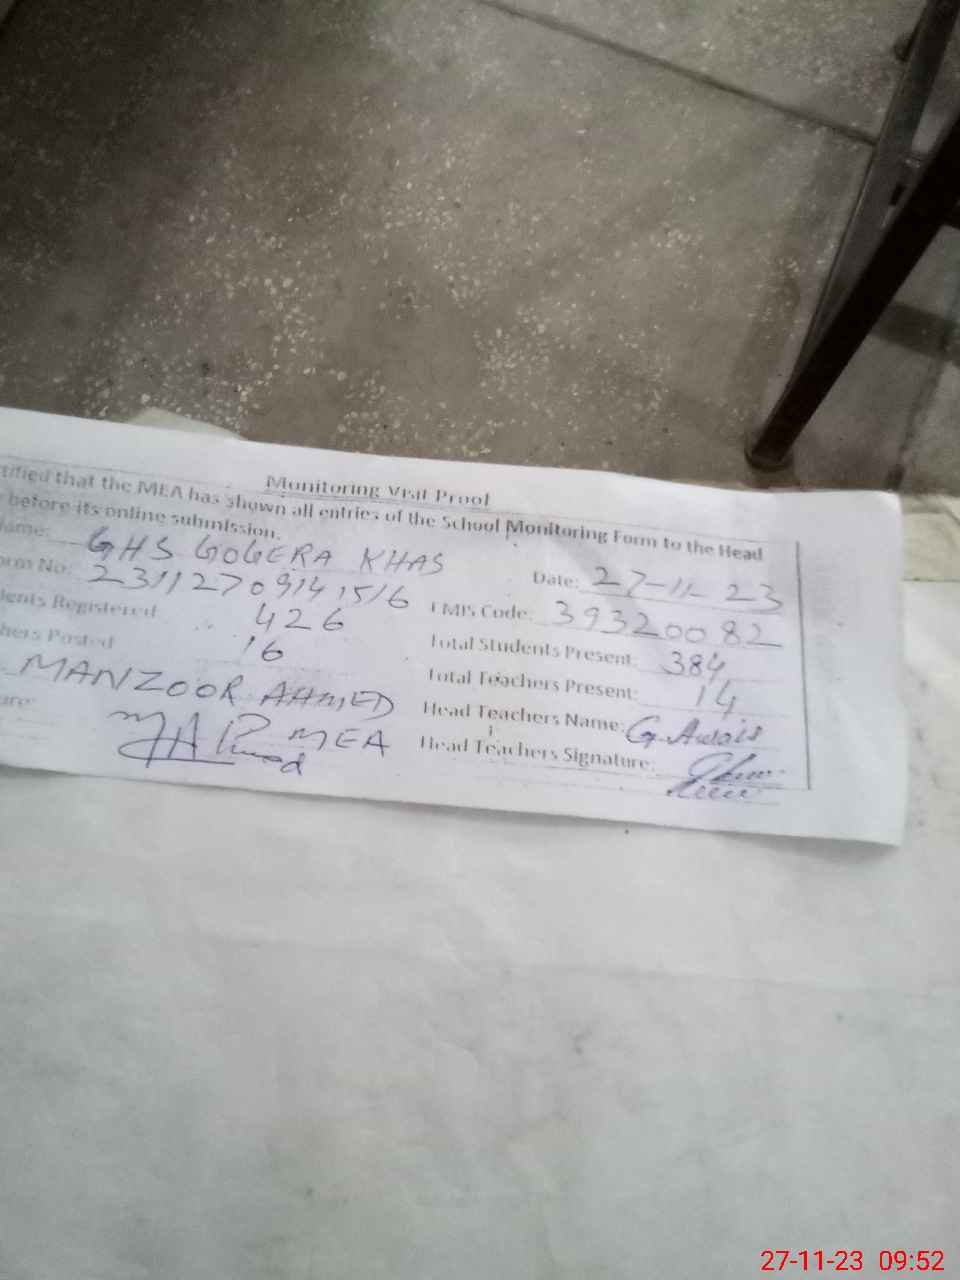 Monitoring Visit Proof
tified that the MEA has shown all entries of the School Monitoring Form to the Head
before its online submission.
Name: GHS GOGERA KHAS Date: 27-11-23
orm No: 23112709141516 EMIS Code: 39320082
dents Registered 426 Total Students Present: 384
hers Posted 16 Total Teachers Present: 14
MANZOOR AHMED Head Teachers Name: G. Awais
ure: MEA Head Teachers Signature:
27-11-23 09:52